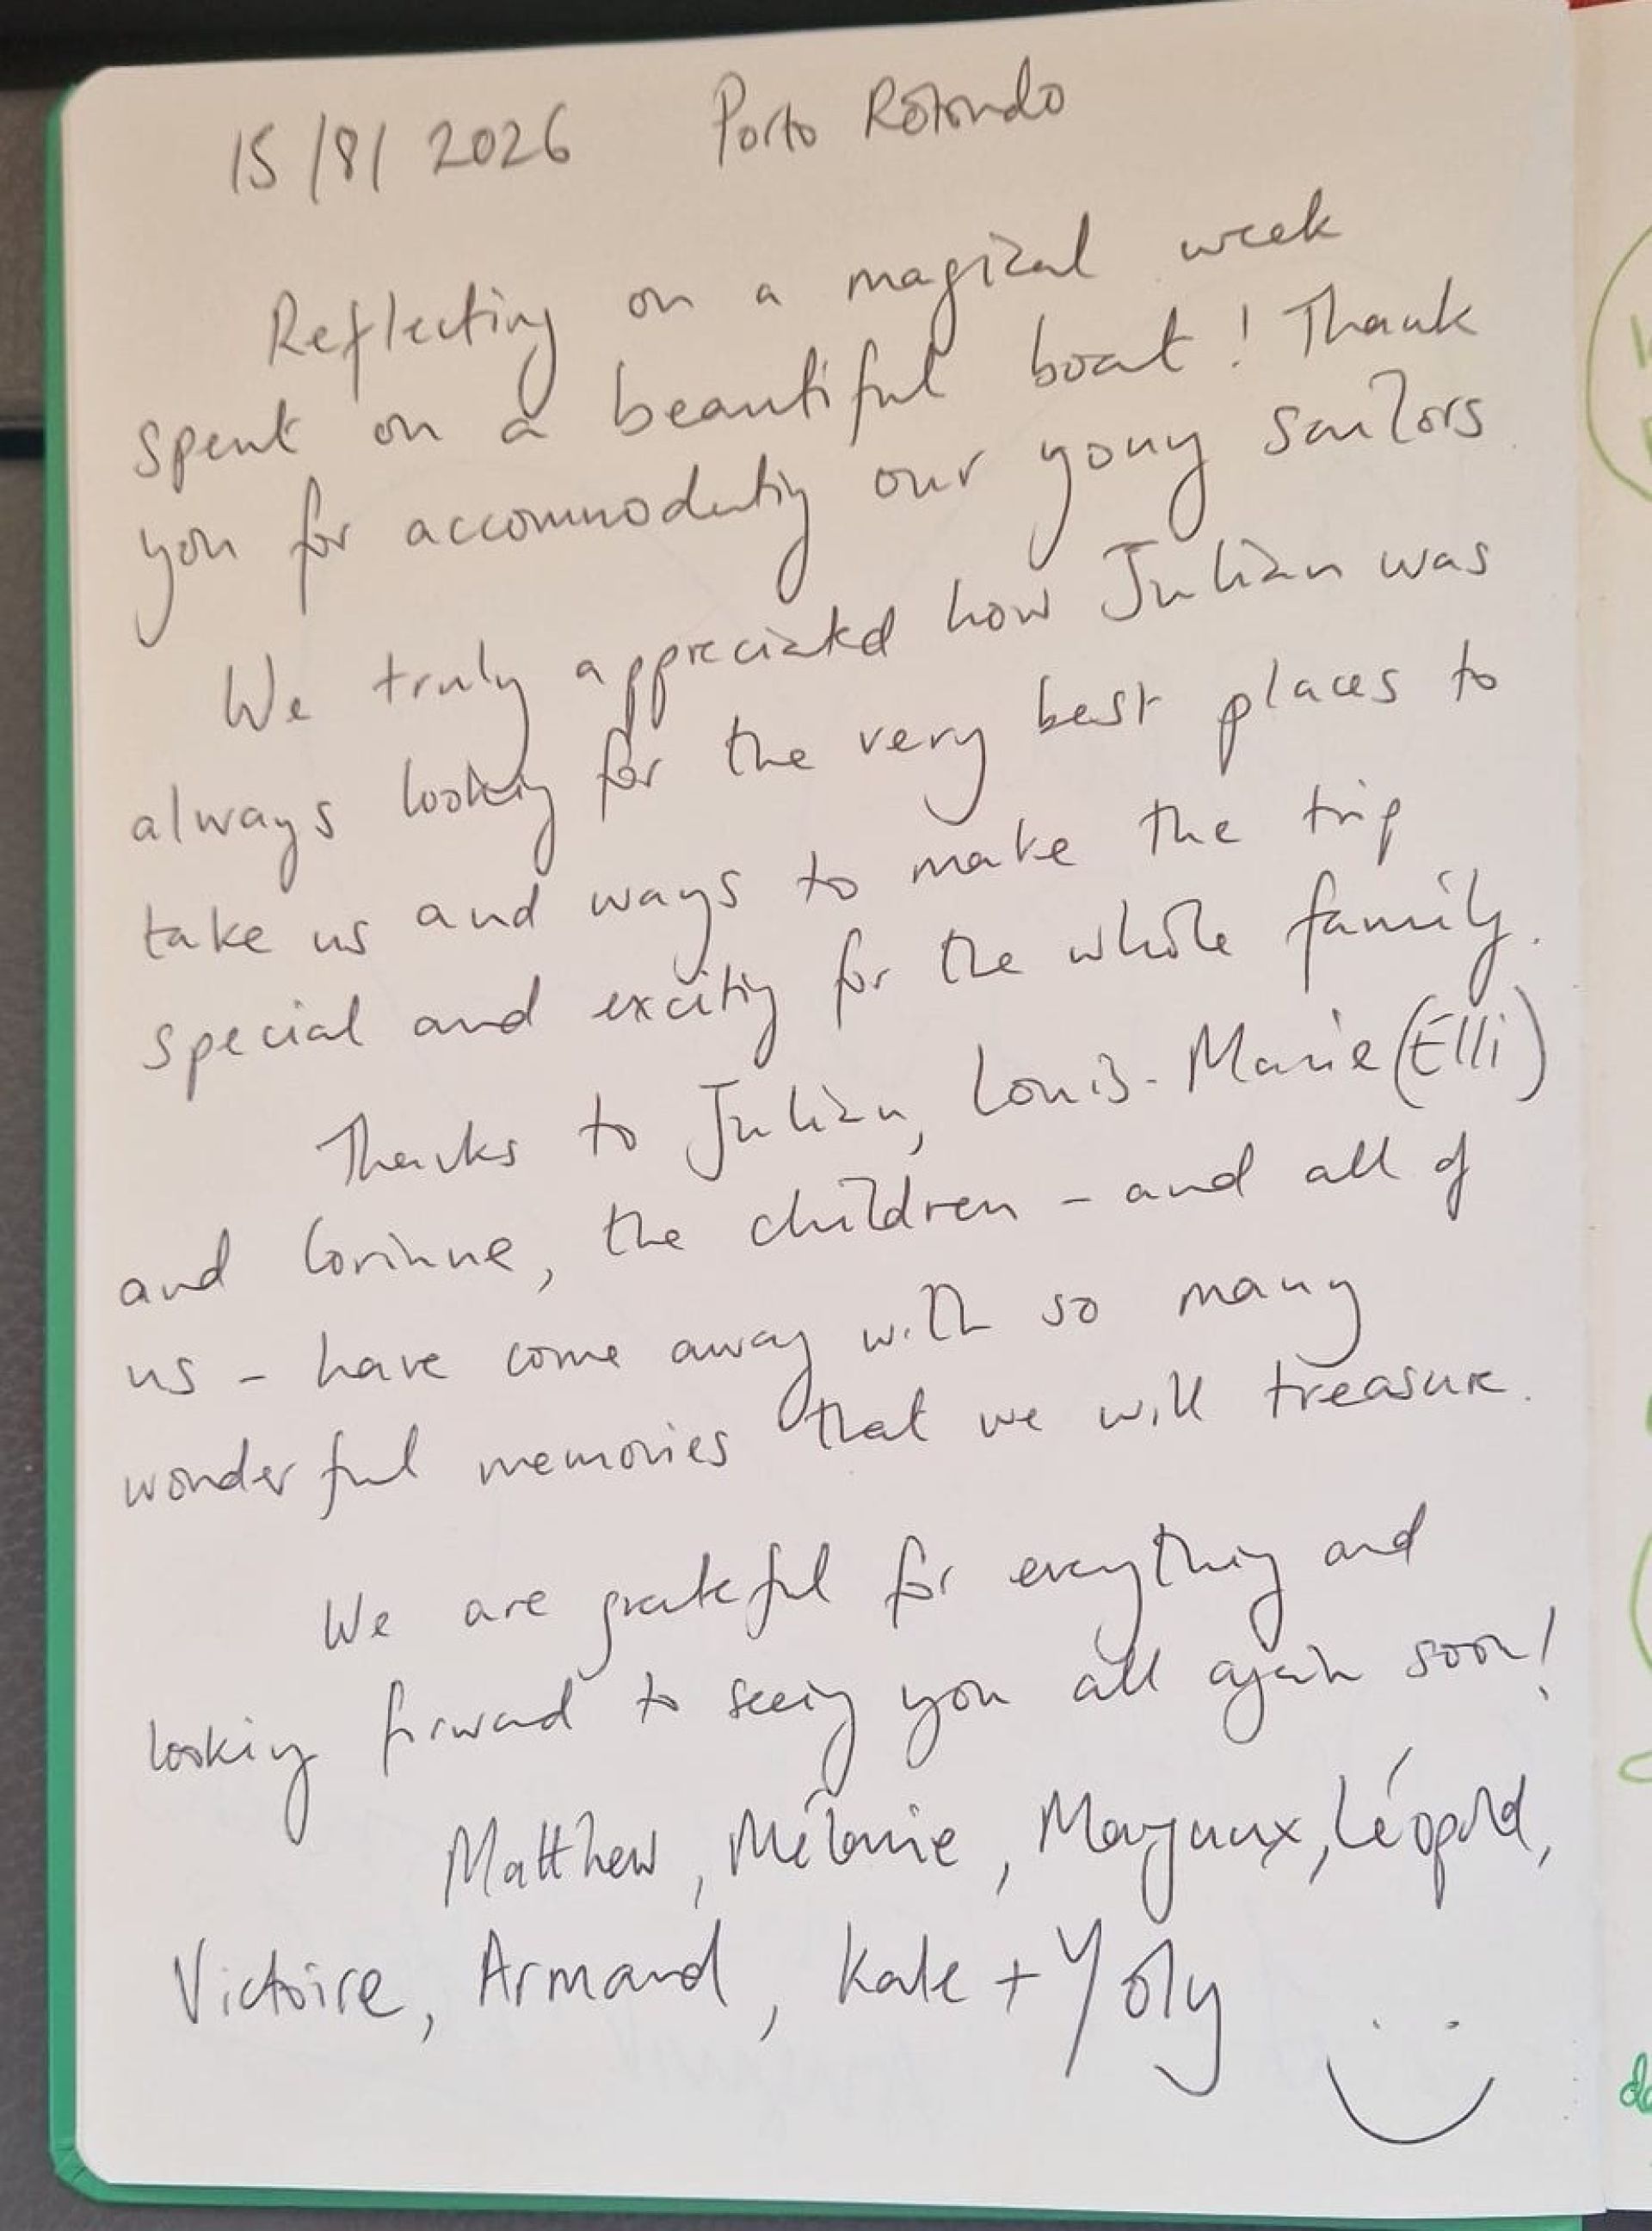 15/8/2026 Porto Rotondo
Reflecting on a magical week
spent on a beautiful boat! Thank
you for accommodating our young sailors.
We truly appreciated how Julian was
always looking for the very best places to
take us and ways to make the trip
special and exciting for the whole family.
Thanks to Julian, Louis-Marie (Elli)
and Corinne, the children - and all of
us - have come away with so many
wonderful memories that we will treasure.
We are grateful for everything and
looking forward to seeing you all again soon!
Matthew, Mélanie, Margaux, Léopold,
Victoire, Armand, Kate + Yoly